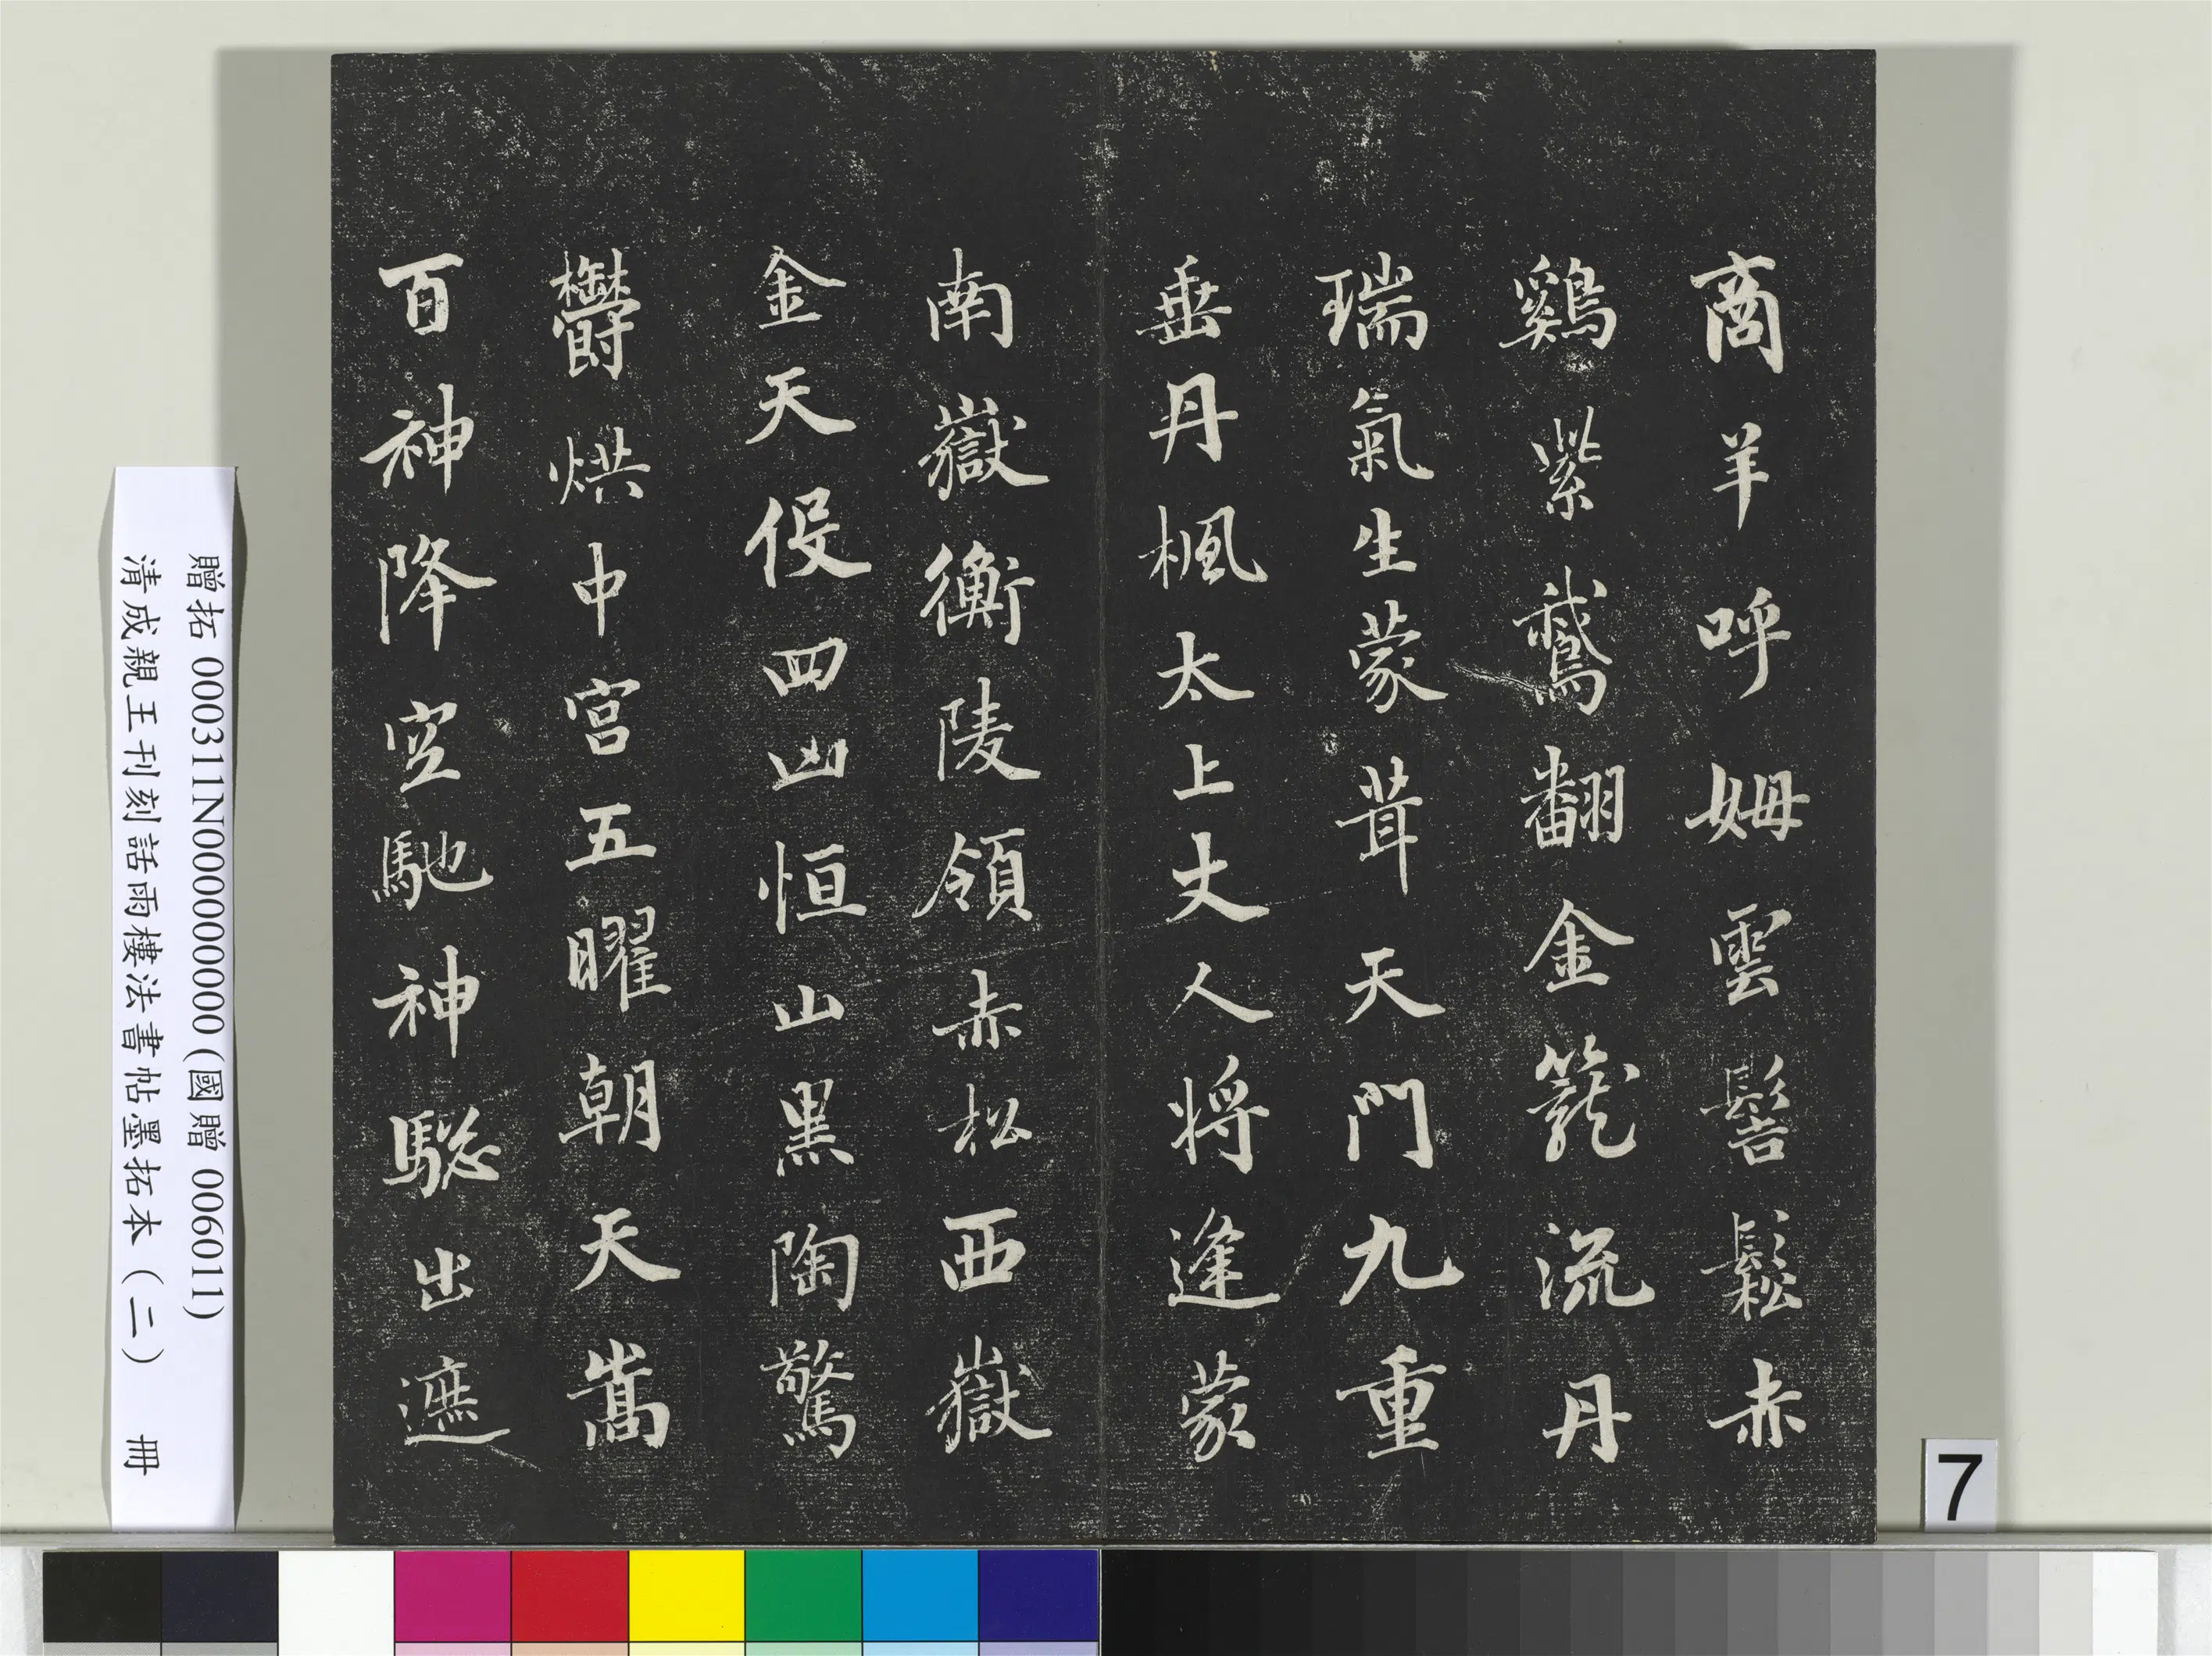 商羊呼姆雲髻鬆赤
鷄紫鸑翻金籠流丹
瑞氣生蒙茸天門九重
垂丹楓太上丈人將逢蒙
南嶽衡陵領赤松西嶽
金天役四凶恒山黑陶驚
欝烘中宮五曜朝天嵩
百神降空馳神騘出遮
贈拓 000311N000000000(國贈 006011)
清成親王刊刻話雨樓法書帖墨拓本(二) 冊
7